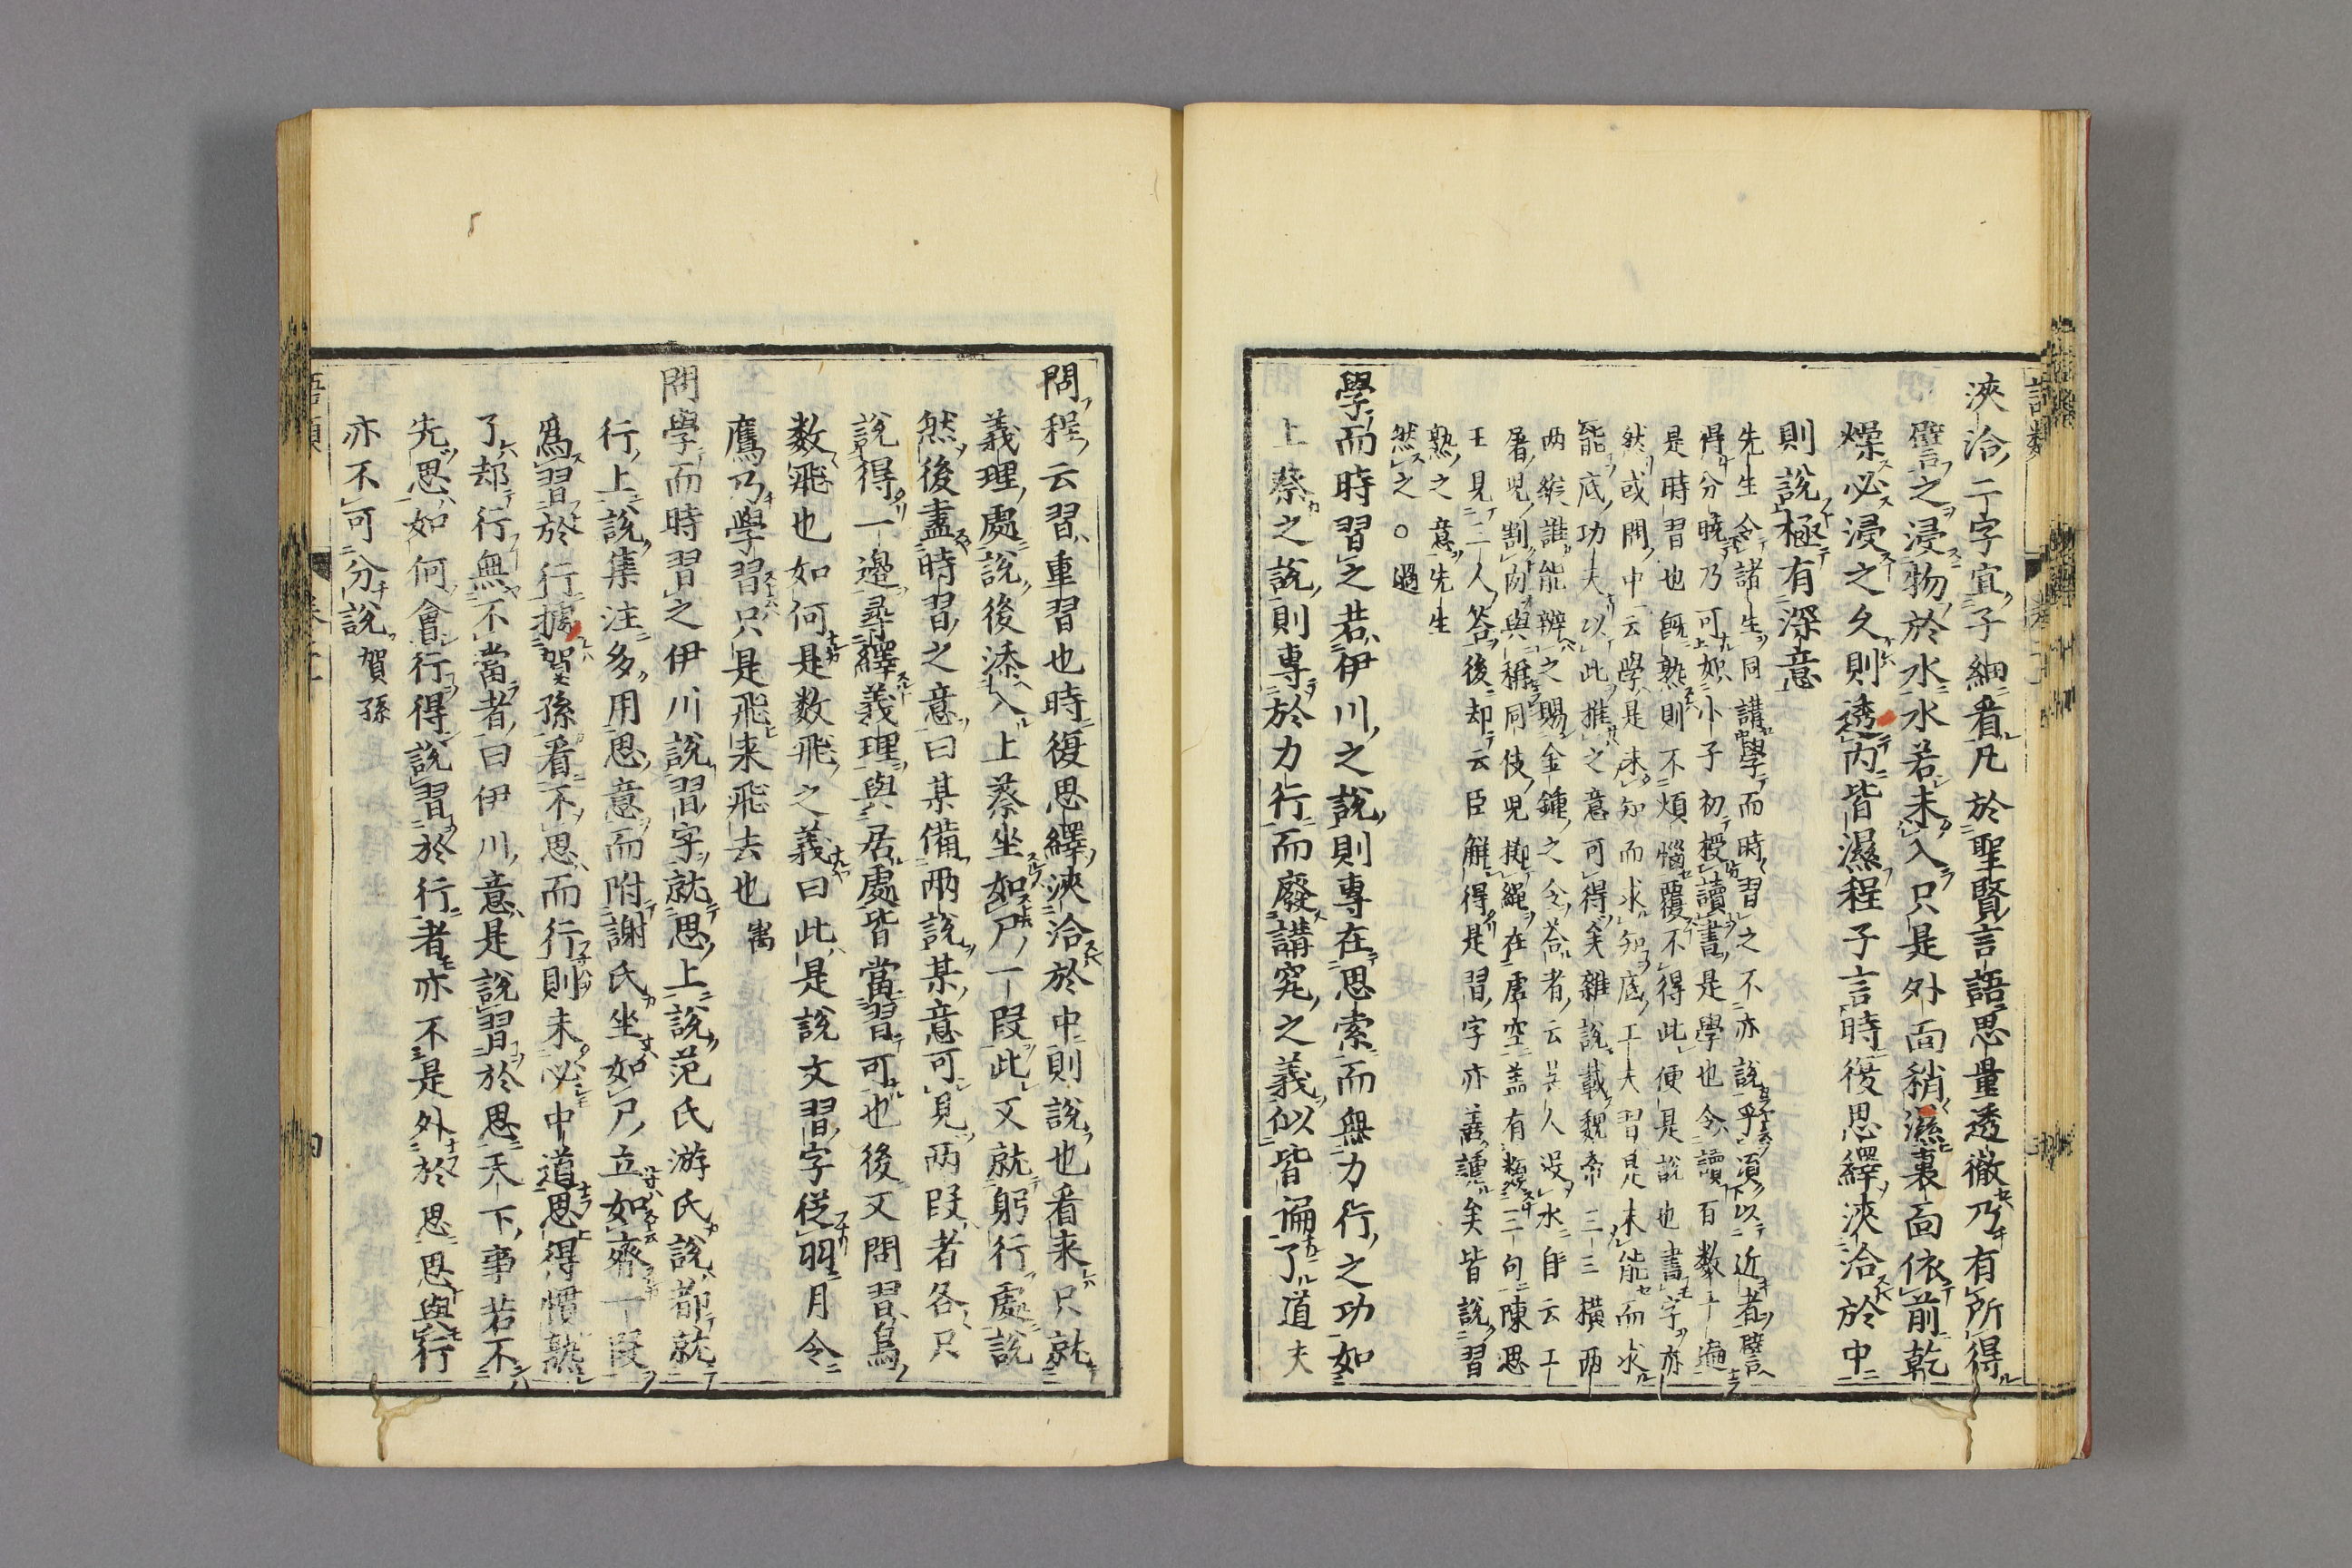 浹洽二字宜子細看凡於聖賢言語思量透徹乃有所得
譬之浸物於水水若未入只是外面稍濕裏面依前乾
燥必浸之久則透內皆濕程子言時復思繹浹洽於中
則說極有深意
先生令諸生同講學而時習之不亦說乎須以近者譬
得分曉乃可如小子初授讀書是學也令讀百數十遍
是時習也既熟則不煩惱覆不得此便是說也書字亦
然或問中云學是未知而求知底工夫習是未能而求
能底功夫以此推之意可得矣雜說載魏帝三三橫两
两縱誰能辨之賜金鍾之令答者云吳人沒水自云工
屠兒割肉與稱同伎兒擲繩在虛空盖有類三句陳思
王見二人答後却云臣解得是習字亦善謔矣皆說習
熟之意先生
然之○過
學而時習之若伊川之說則專在思索而無力行之功如
上蔡之說則專於力行而廢講究之義似皆偏了道夫
問程云習重習也時復思繹浹洽於中則說也看来只就
義理處說後添入上蔡坐如尸一段此又就躬行處說
然後盡時習之意曰某備兩說某意可見两段者各只
說得一邊尋繹義理與居處皆當習可也後又問習鳥
数飛也如何是数飛之義曰此是說文習字從羽月令
鷹乃學習只是飛来飛去也㝢
問學而時習之伊川說習字就思上說范氏游氏說都就
行上說集注多用思意而附謝氏坐如尸立如齊一段
爲習於行據賀孫看不思而行則未必中道思得慣熟
了却行無不當者曰伊川意是說習於思天下事若不
先思如何會行得說習於行者亦不是外於思思與行
亦不可分說賀孫